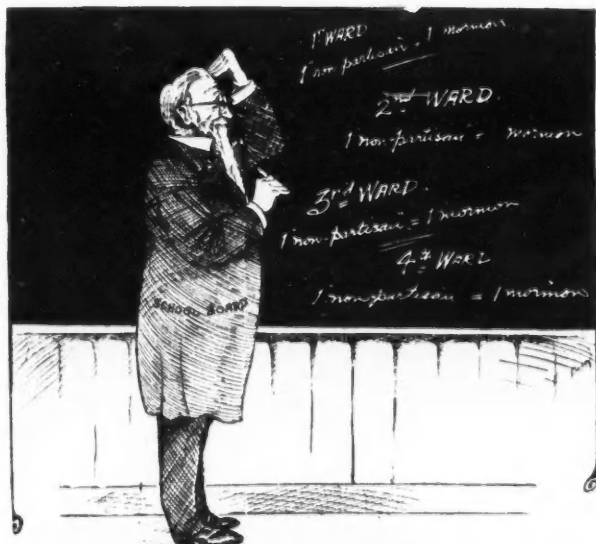 1st WARD
1 non partisan = 1 mormon
2nd WARD.
1 non-partisan = mormon
3rd WARD.
1 non-partisan = 1 mormon
4th WARD
1 non-partisan = 1 mormon
SCHOOL BOARD